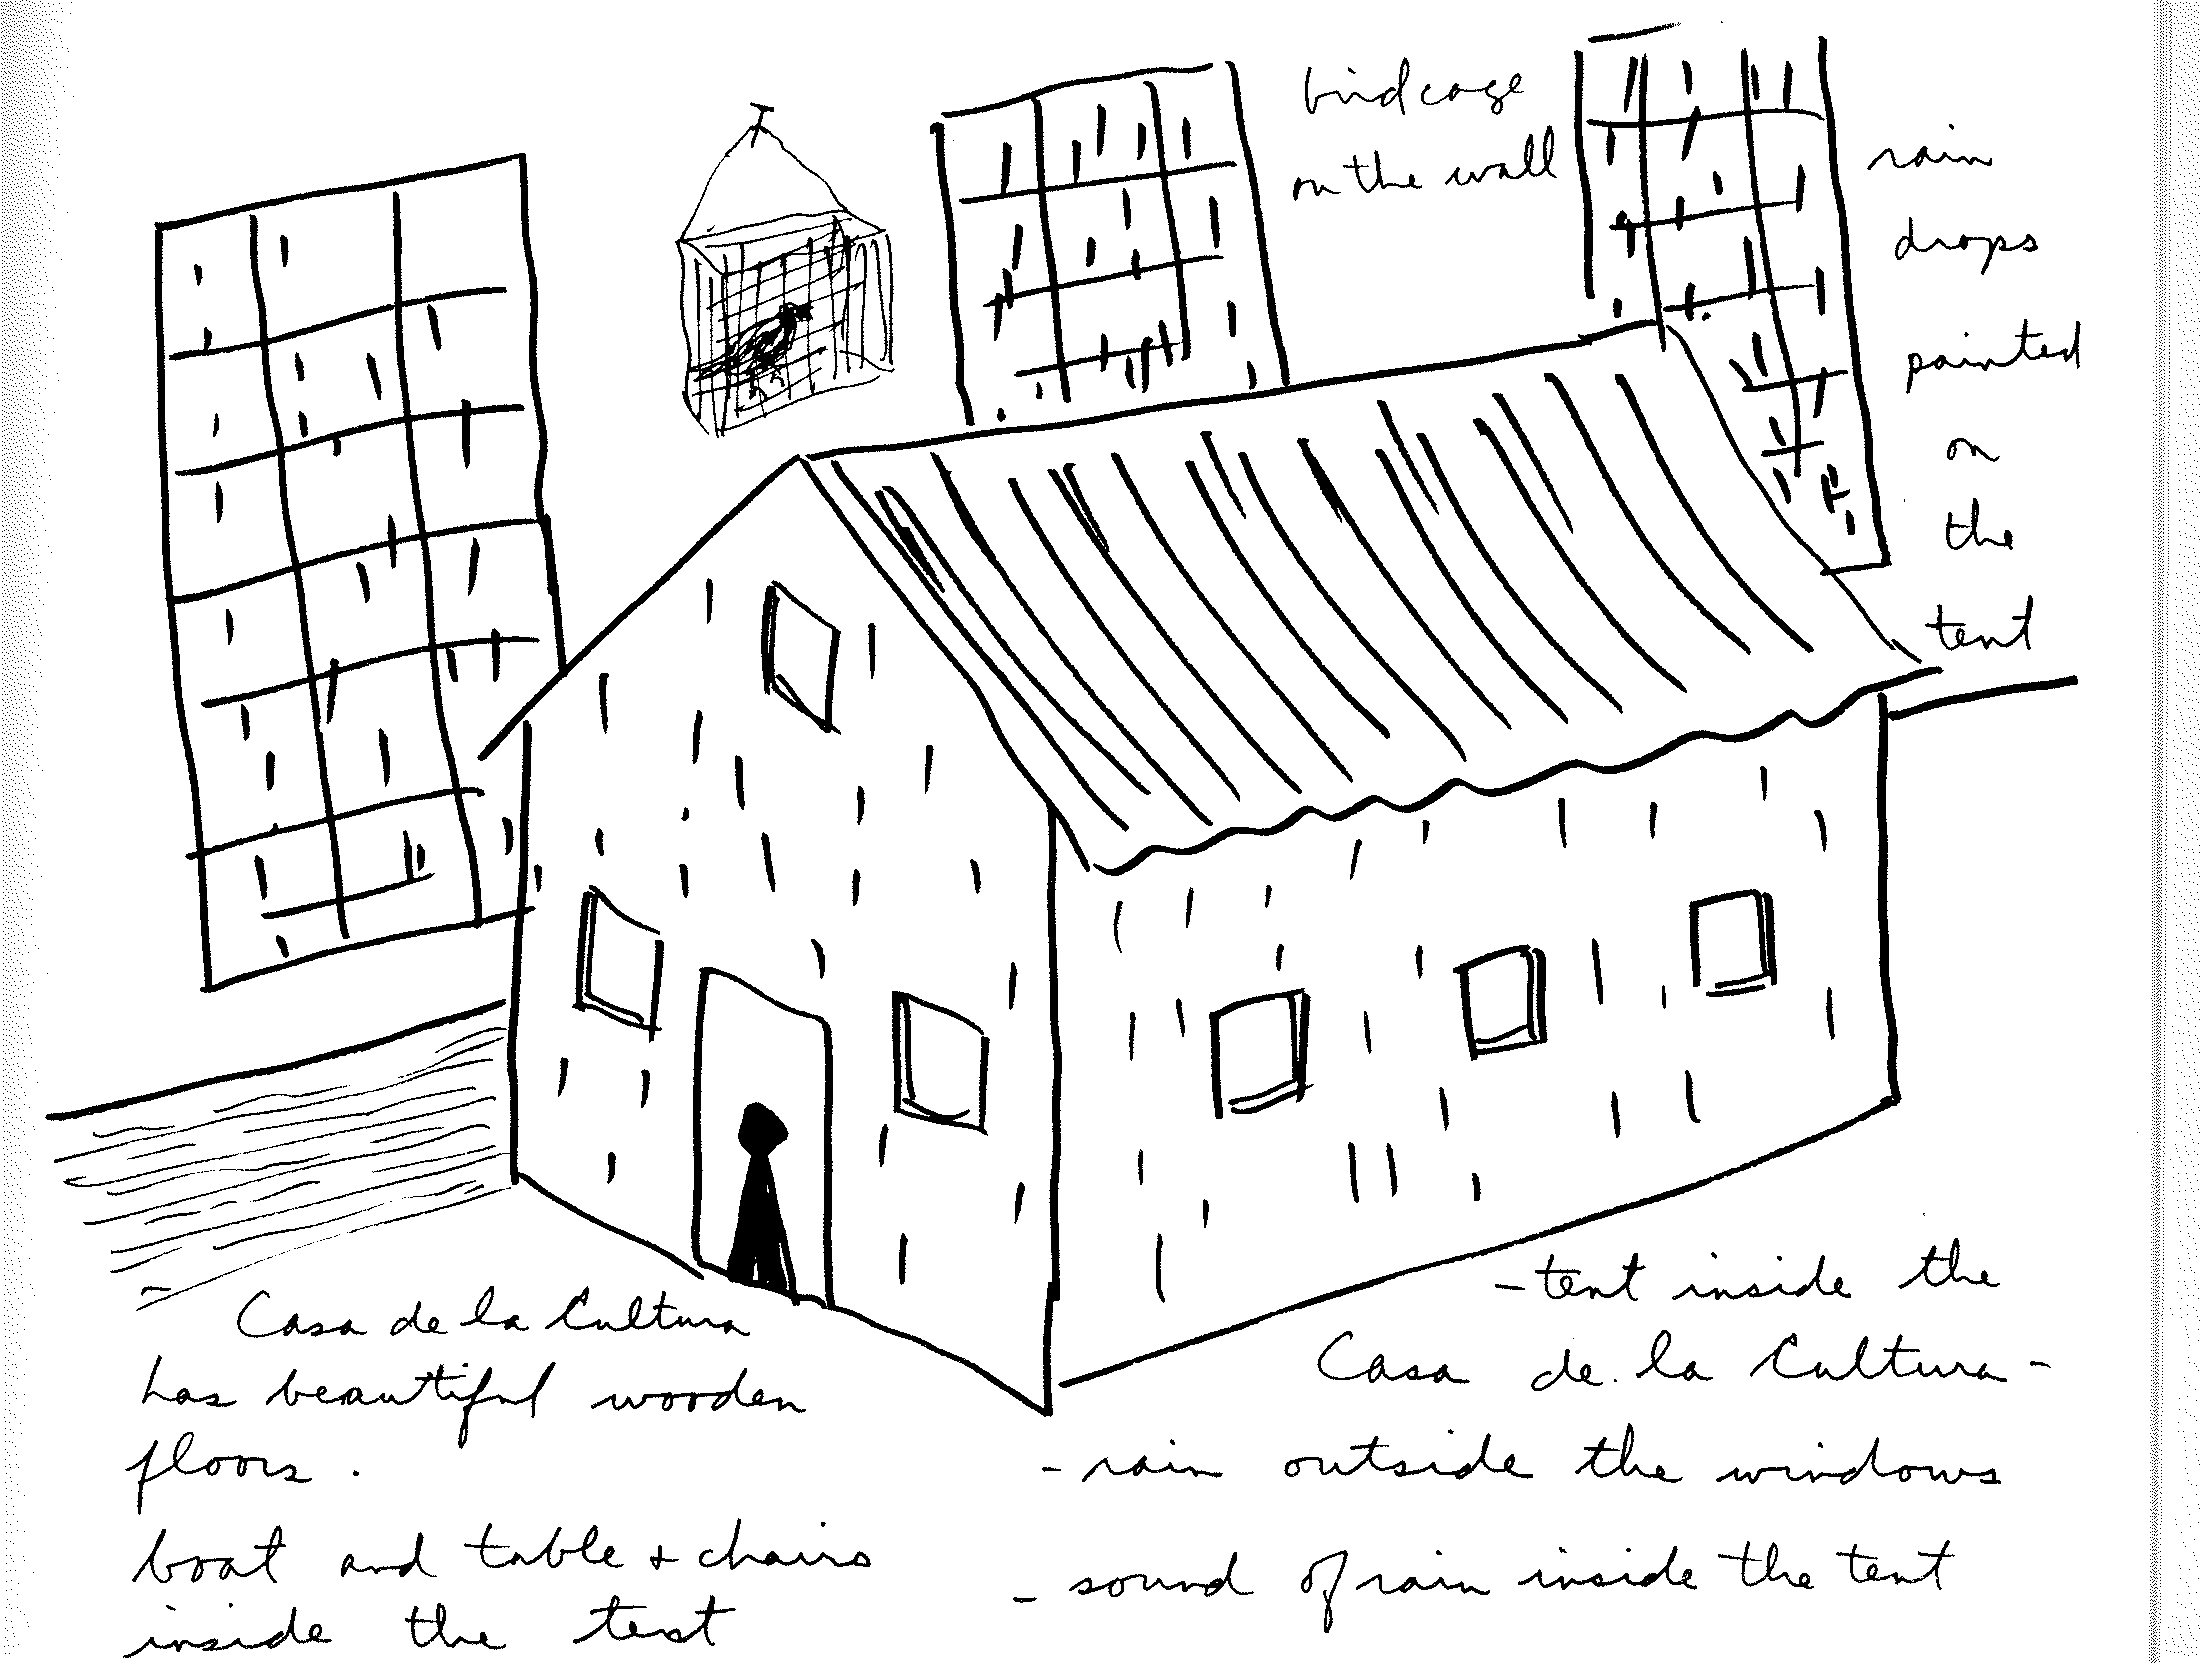 birdcage
on the wall
rain
drops
painted
on
the
tent
- Casa de la Cultura
has beautiful wooden
floors.
boat and table + chairs
inside the tent
- tent inside the
Casa de la Cultura -
- rain outside the windows
- sound of rain inside the tent